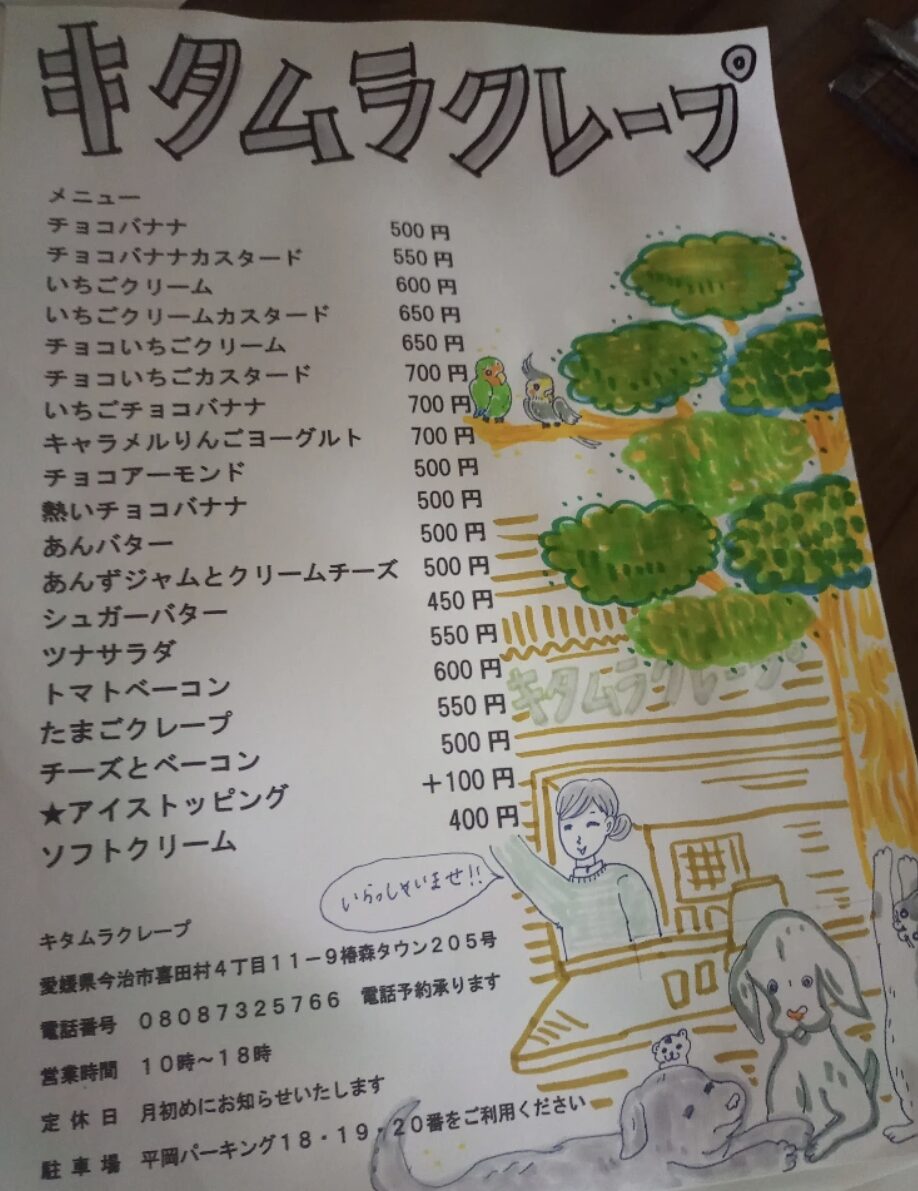 キタムラクレープ
メニュー
チョコバナナ 500円
チョコバナナカスタード 550円
いちごクリーム 600円
いちごクリームカスタード 650円
チョコいちごクリーム 650円
チョコいちごカスタード 700円
いちごチョコバナナ 700円
キャラメルりんごヨーグルト 700円
チョコアーモンド 500円
熱いチョコバナナ 500円
あんバター 500円
あんずジャムとクリームチーズ 500円
シュガーバター 450円
ツナサラダ 550円
トマトベーコン 600円
たまごクレープ 550円
チーズとベーコン 500円
★アイストッピング +100円
ソフトクリーム 400円
キタムラクレープ
いらっしゃいませ!!
キタムラクレープ
愛媛県今治市喜田村4丁目11-9椿森タウン205号
電話番号 08087325766 電話予約承ります
営業時間 10時~18時
定休日 月初めにお知らせいたします
駐車場 平岡パーキング18・19・20番をご利用ください